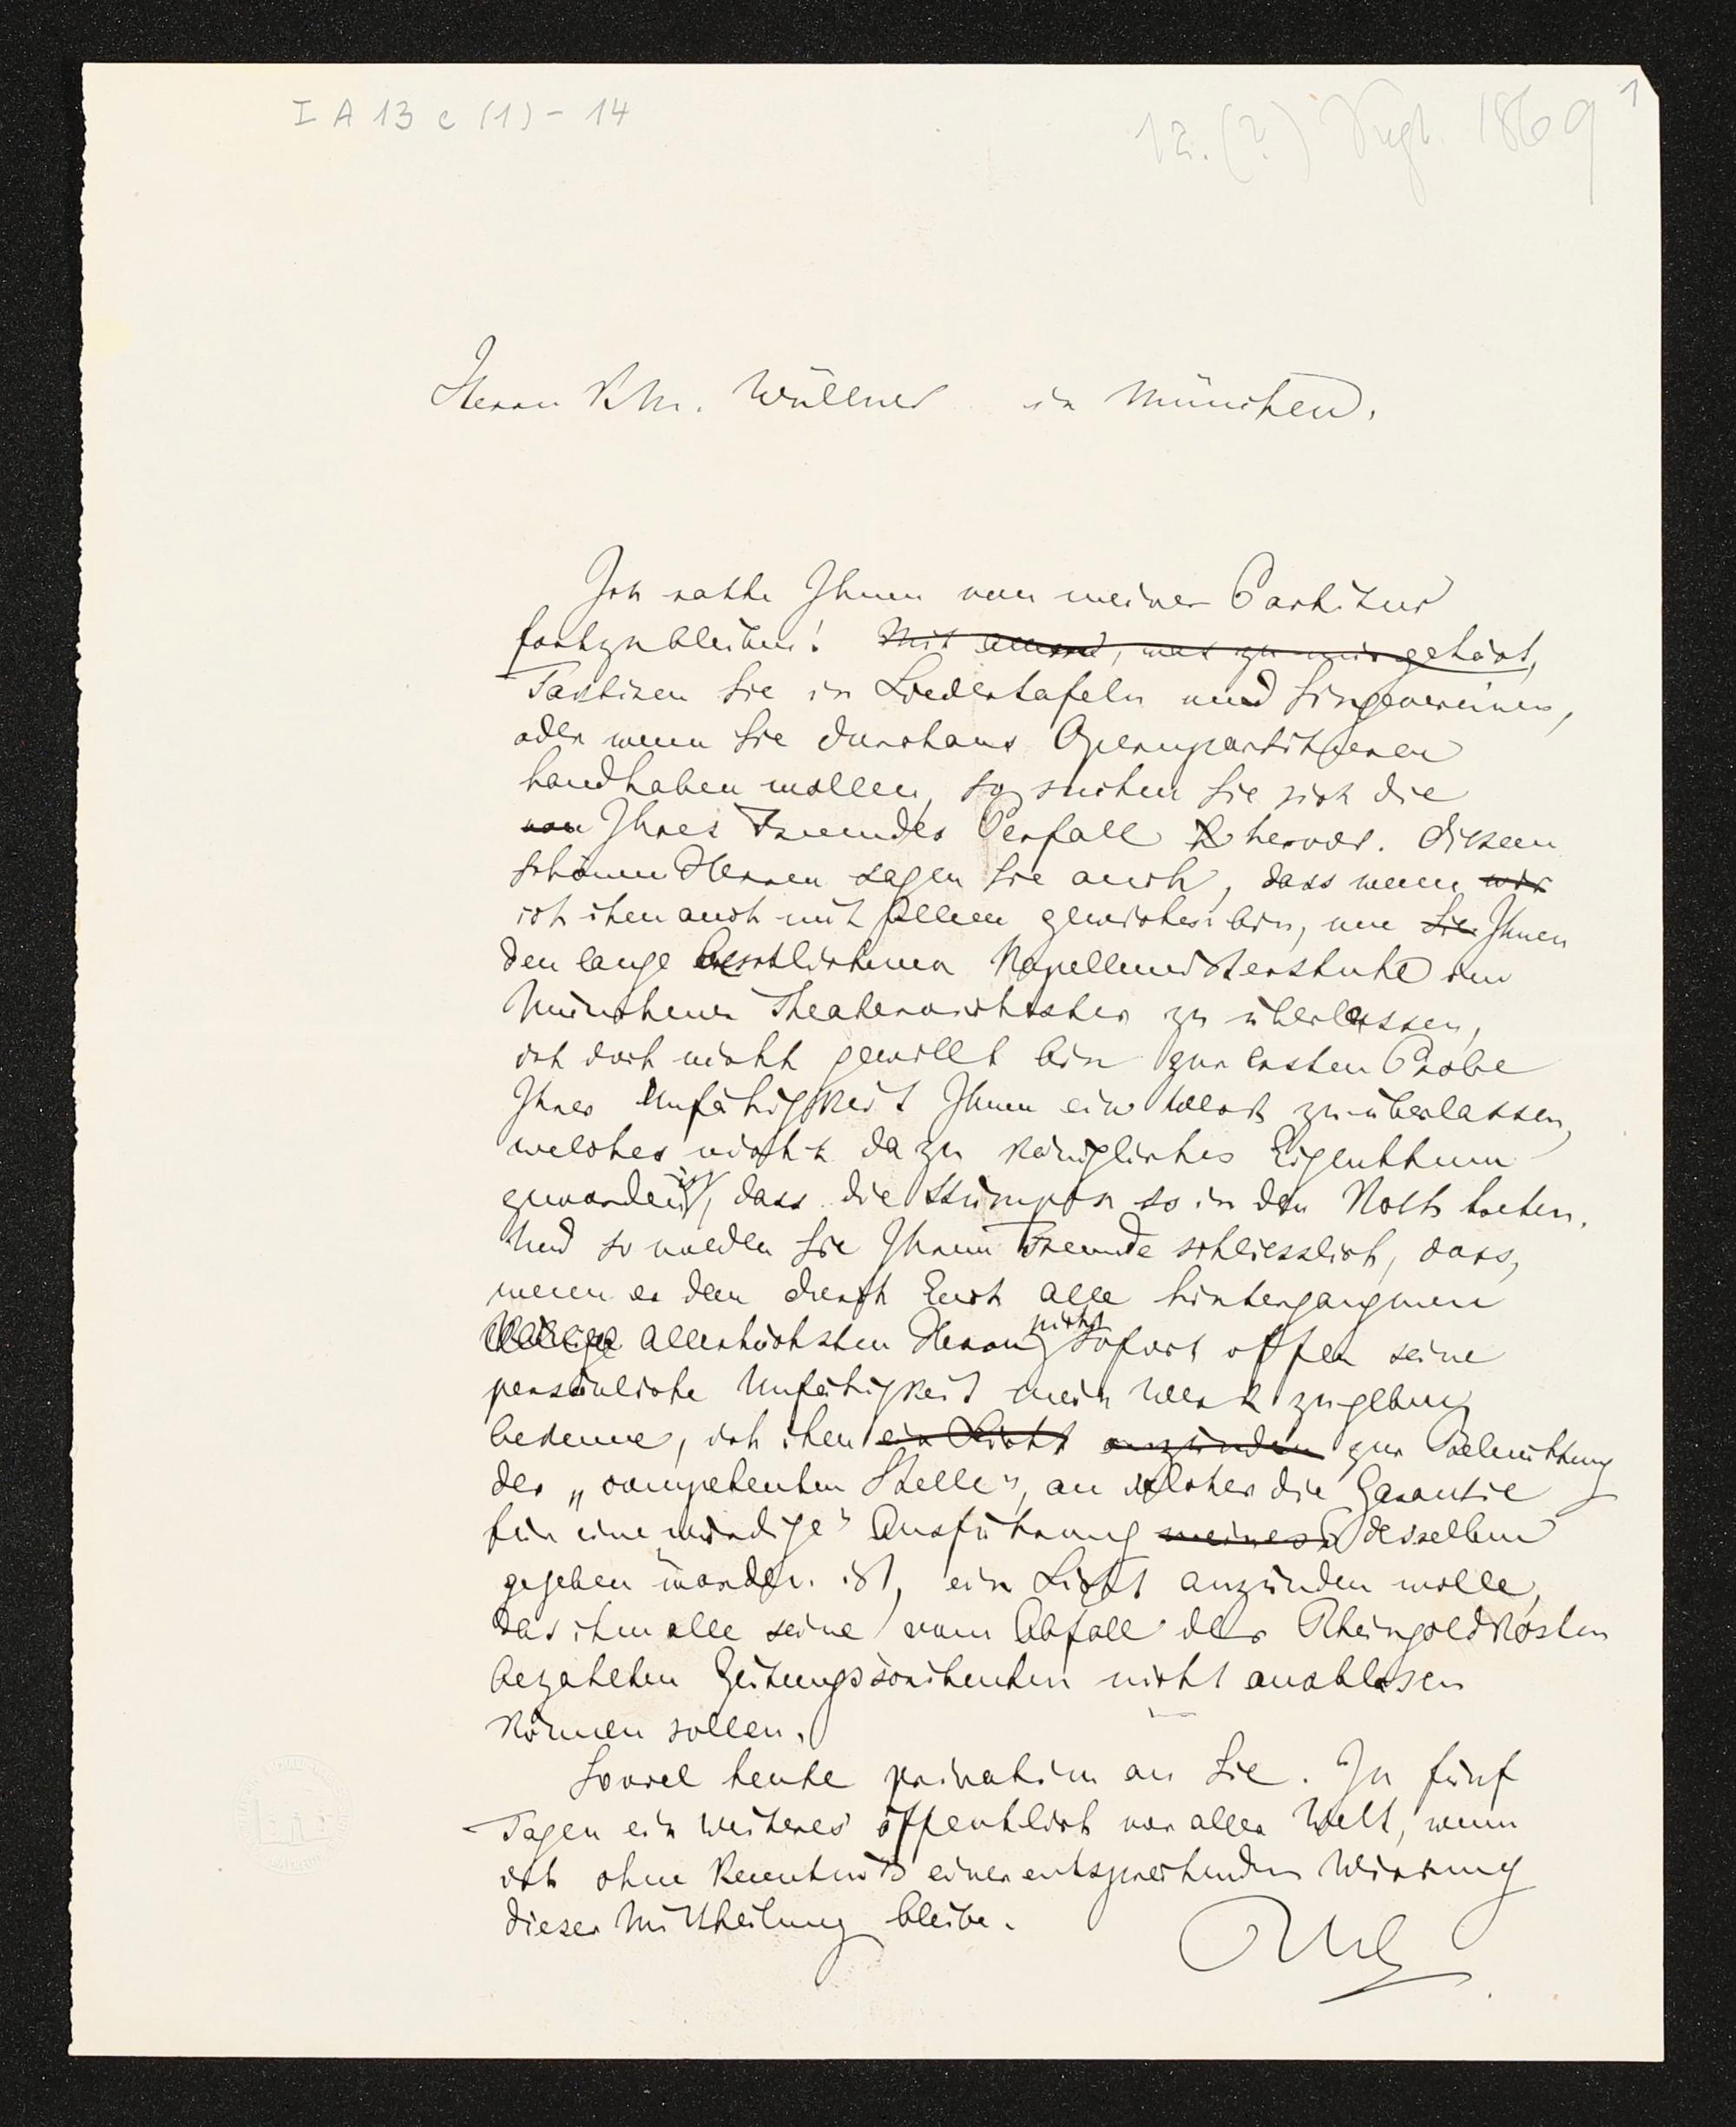 I A 13 c (1) - 14
12. (?) Sept. 1869
1
Herrn KM. Wüllner in München.
Ich rathe Ihnen von meiner Partitur
fortzubleiben! Mit allem, was zu mir gehört,
Taktiren Sie in Liedertafeln und Singevereinen,
oder wenn Sie durchaus Opernpartituren
handhaben wollen, so suchen Sie sich die
von Ihres Freundes Perfall hervor. Diesem
schönen Herren sagen Sie auch, dass wenn wir
ich ihm auch mit Allem gewichen bin, um Sie Ihnen
den lange Kapellmeisterstuhl im
Münchener Theaterorchester zu überlassen,
ich doch nicht gewillt bin zur ersten Probe
Ihrer Unfähigkeit Ihnen ein Werk zu überlassen,
welches nicht dazu königliches Eigenthum
geworden ist, dass die Stümper so in den Koth treten.
Und so melden Sie Ihrem Freunde schliesslich, dass,
wenn er dem durch Euch alle hintergangenen
allerhöchsten Herrn nicht sofort offen seine
persönliche Unfähigkeit mein Werk zu geben
bekenne, ich ihm ein Licht anzünden zur Beleuchtung
der „competenten Stelle", an welcher die Garantie
für eine „würdige" Ausführung meines desselben
gegeben worden ist, ein Licht anzünden wolle,
das ihm alle seine vom Abfall der Rheingoldkosten
bezahlten Zeitungsscribenten nicht ausblasen
können sollen.
Soviel heute privatim an Sie. In fünf
Tagen ein weiteres öffentlich vor aller Welt, wenn
ich ohne Kenntniss einer entsprechenden Wirkung
dieser Mittheilung bleibe.